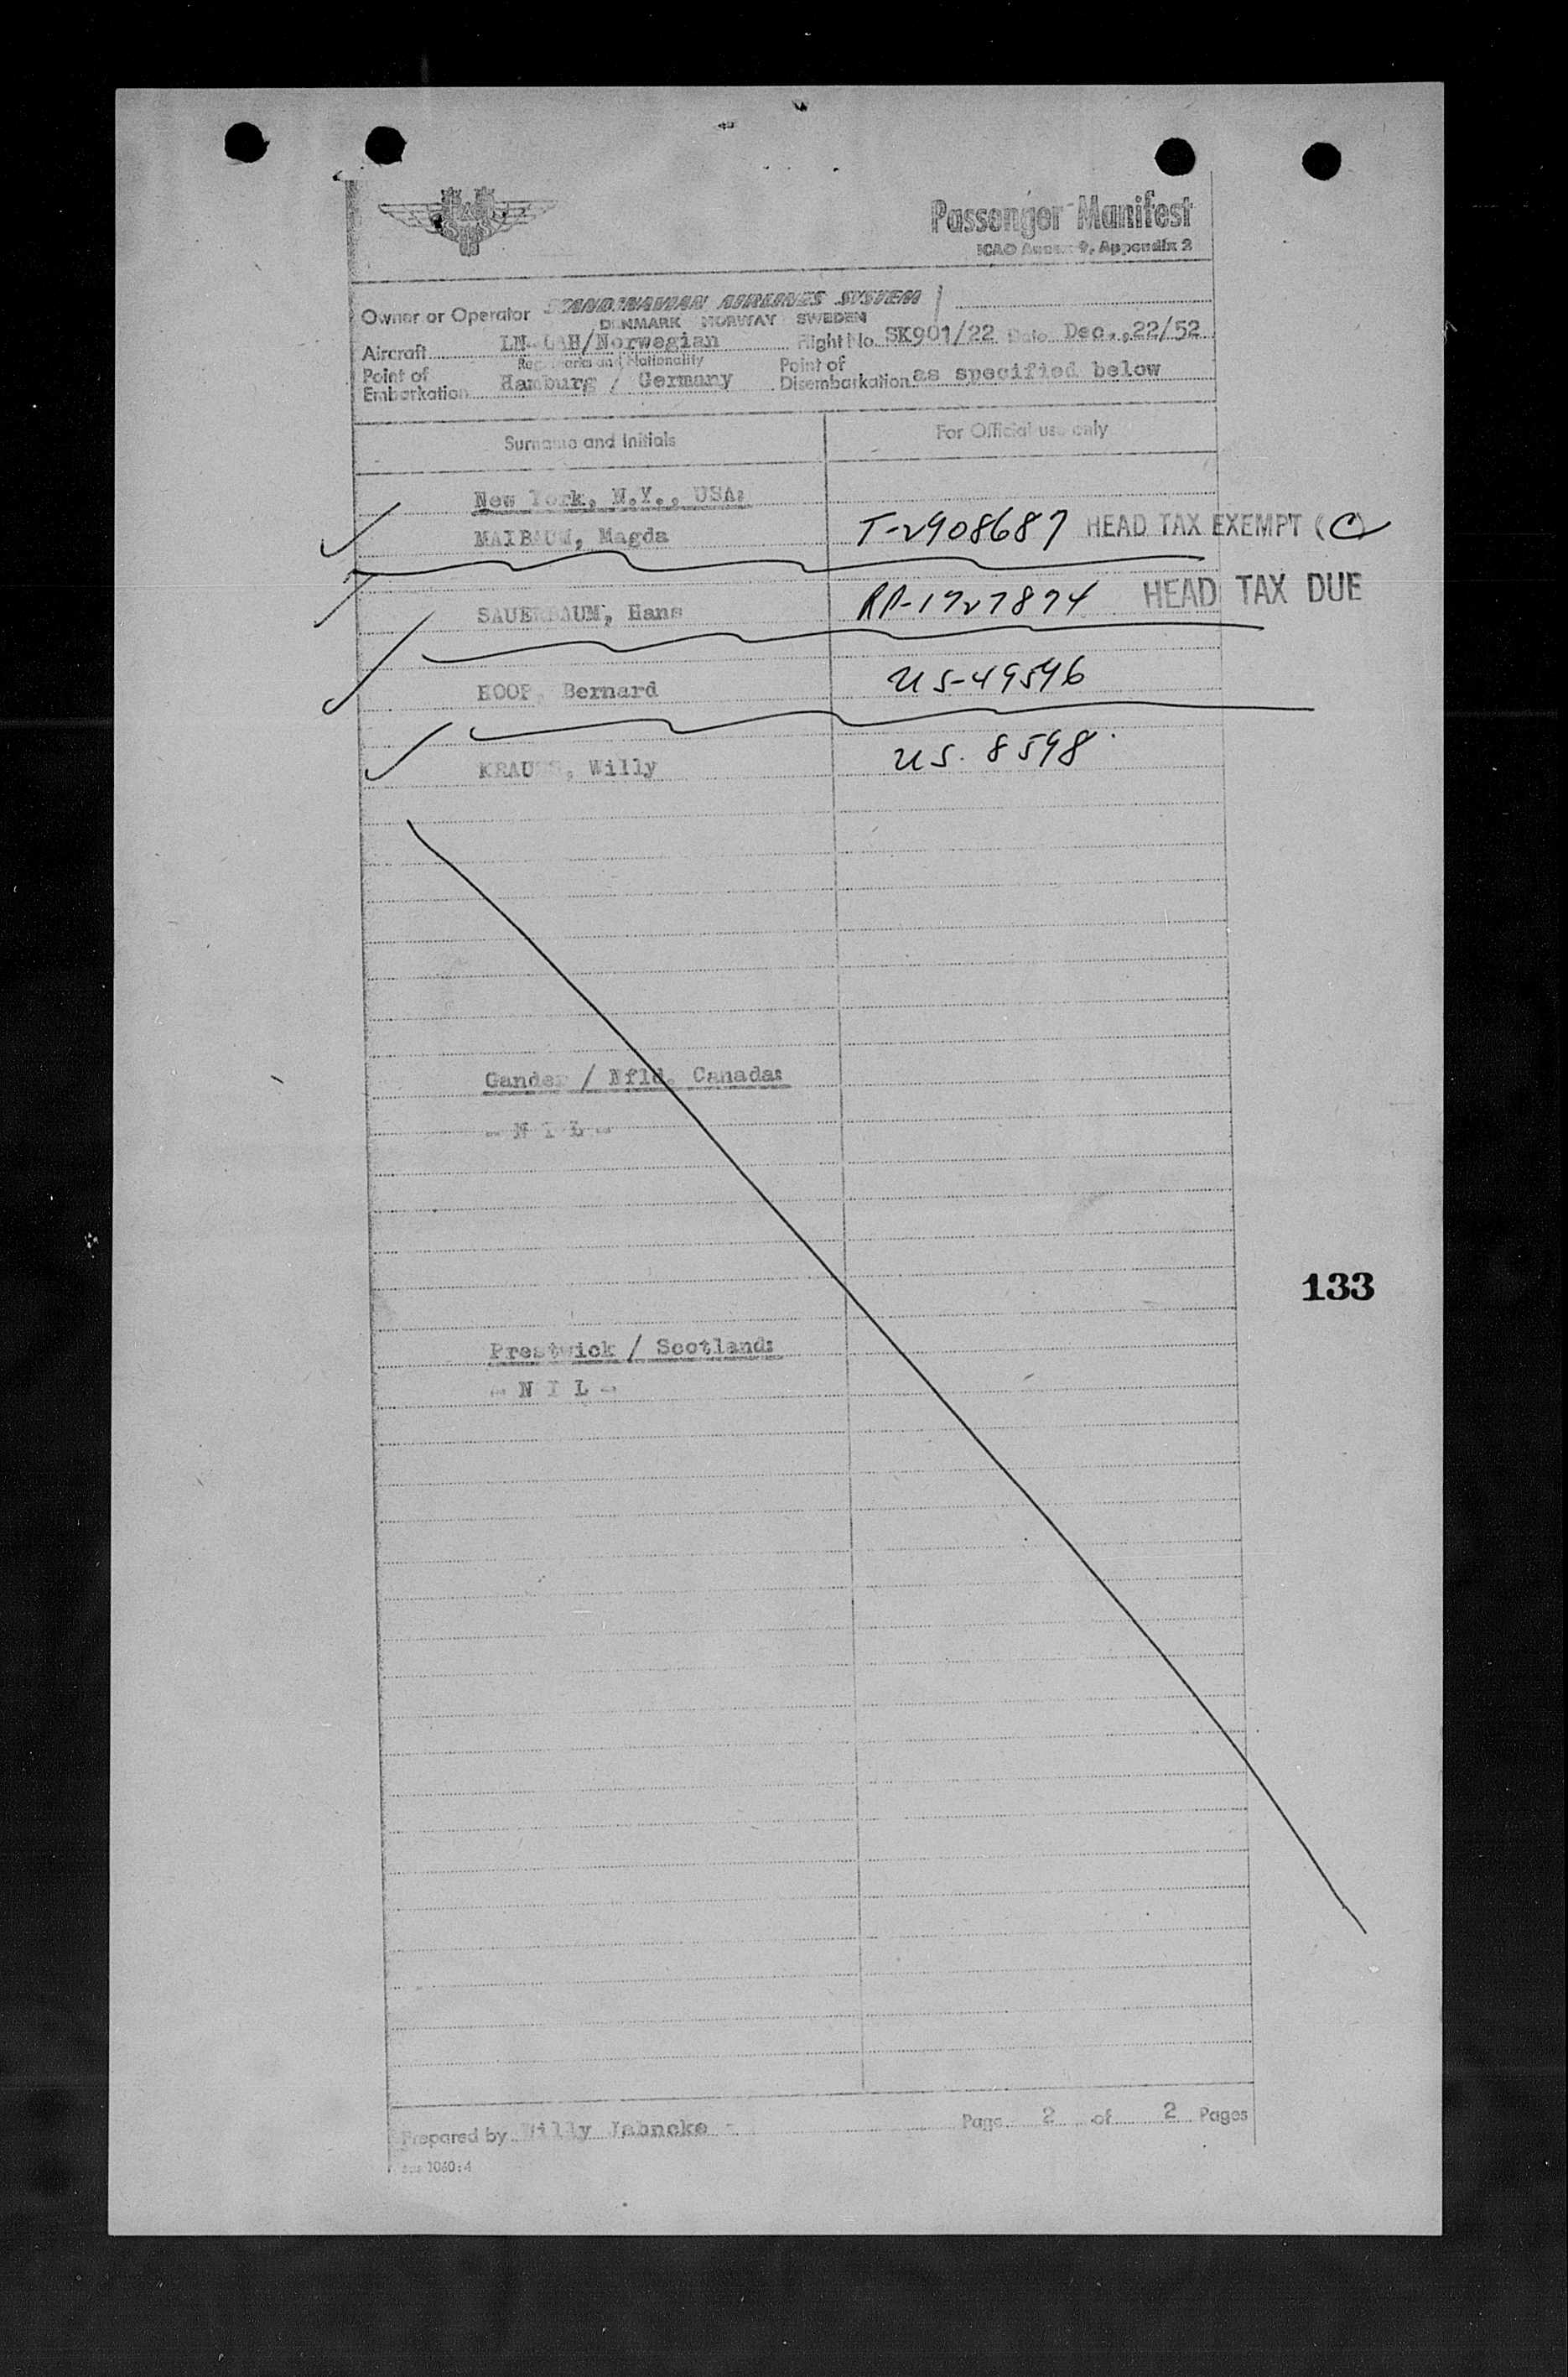 SAS
Passenger Manifest
ICAO Annex 9, Appendix 2
Owner or Operator SCANDINAVIAN AIRLINES SYSTEM
DENMARK NORWAY SWEDEN
Aircraft LN-LAH/Norwegian Flight No. SK901/22 Date Dec., 22/52
Reg. marks and Nationality
Point of Embarkation Hamburg / Germany Point of Disembarkation as specified below
Surname and Initials For Official use only
New York, N.Y., USA:
MAIBAUM, Magda T-2908687 HEAD TAX EXEMPT (C)
SAUERBAUM, Hans RP-1727874 HEAD TAX DUE
Bernard US-49596
KRAUSS, Willy US. 8598
Gander / Nfld. Canada:
- N I L -
133
Prestwick / Scotland:
- N I L -
Prepared by Willy Jahncke Page 2 of 2 Pages
1060:4